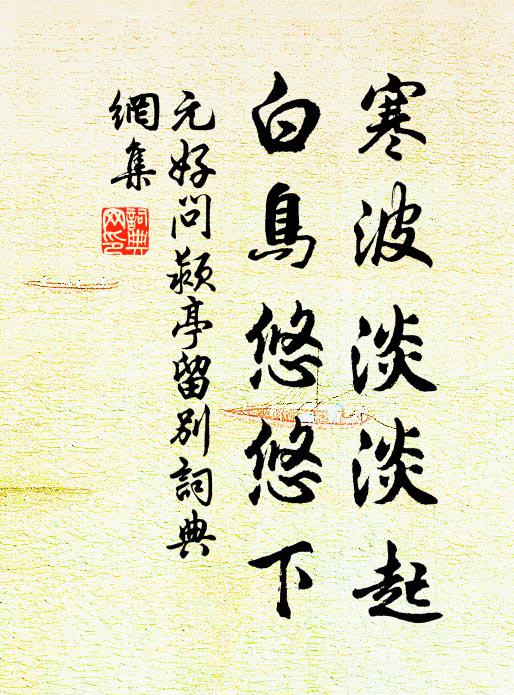 寒波淡淡起
白鳥悠悠下
元好問潁亭留別詞典
網集
詞典
网印